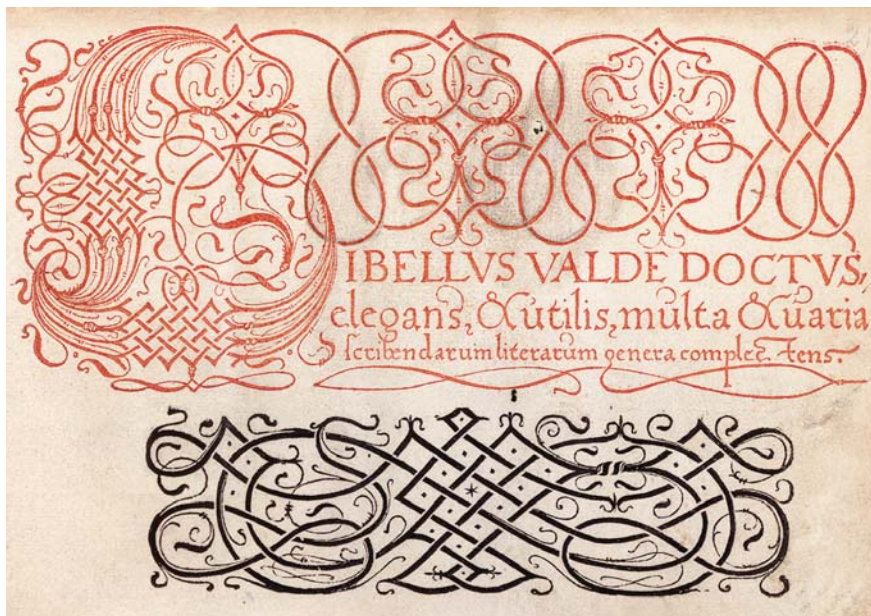 LIBELLVS VALDE DOCTVS,
elegans, & utilis, multa & uaria
scribendarum literarum genera complectens.